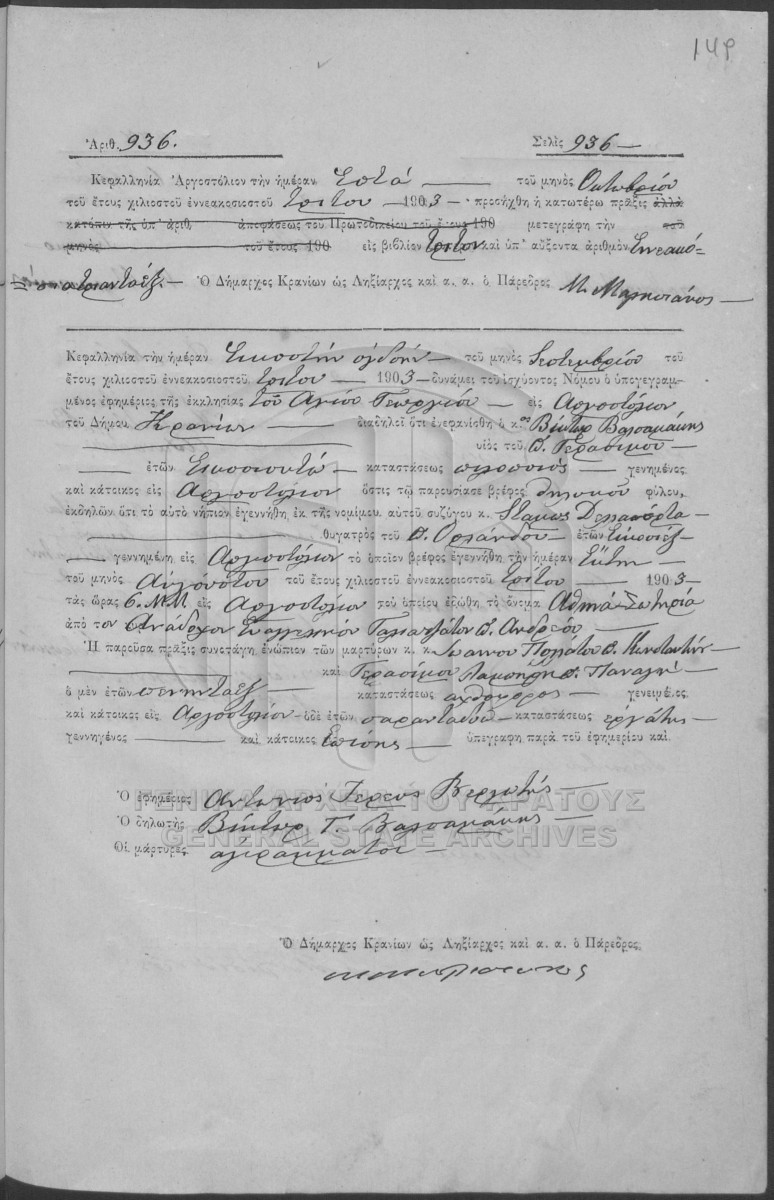 149
Ἀριθ. 936. Σελὶς 936 —
Κεφαλληνία Ἀργοστόλιον τὴν ἡμέραν Ἑπτά — τοῦ μηνὸς Ὀκτωβρίου
τοῦ ἔτους χιλιοστοῦ ἐννεακοσιοστοῦ τρίτου — 1903 — προσήχθη ἡ κατωτέρω πρᾶξις ἀλλὰ
κατόπιν τῆς ὑπ' ἀριθ. ἀποφάσεως τοῦ Πρωτοδικείου τοῦ ἔτους 190 μετεγράφη τὴν τοῦ
μηνὸς τοῦ ἔτους 190 εἰς βιβλίον τρίτον καὶ ὑπ' αὔξοντα ἀριθμὸν Ἐννεακό-
σια τριανταέξ. — Ὁ Δήμαρχος Κρανίων ὡς Ληξίαρχος καὶ α. α. ὁ Πάρεδρος
Κεφαλληνία τὴν ἡμέραν Εἰκοστὴν ὀγδόην — τοῦ μηνὸς Σεπτεμβρίου τοῦ
ἔτους χιλιοστοῦ ἐννεακοσιοστοῦ τρίτου — 1903 — δυνάμει τοῦ ἰσχύοντος Νόμου ὁ ὑπογεγραμ-
μένος ἐφημέριος τῆς ἐκκλησίας τοῦ Ἁγίου Γεωργίου — εἰς Ἀργοστόλιον
τοῦ Δήμου Κρανίων — διαδηλοῖ ὅτι ἐνεφανίσθη ὁ κος Βίκτωρ Βαλσαμάκης
υἱὸς τοῦ π. Γερασίμου —
— ἐτῶν Εἰκοσιοκτώ — καταστάσεως — γενημένος
καὶ κάτοικος εἰς Ἀργοστόλιον ὅστις τῷ παρουσίασε βρέφος θηλυκοῦ φύλου,
ἐκδηλῶν ὅτι τὸ αὐτὸ νήπιον ἐγεννήθη ἐκ τῆς νομίμου αὐτοῦ συζύγου κ. Σταμως Δελαπόρτα —
— θυγατρὸς τοῦ π. Ὀρλάνδου — ἐτῶν Εἰκοσιέξ —
— γεννημένη εἰς Ἀργοστόλιον τὸ ὁποῖον βρέφος ἐγεννήθη τὴν ἡμέραν Ἕκτην —
τοῦ μηνὸς Αὐγούστου τοῦ ἔτους χιλιοστοῦ ἐννεακοσιοστοῦ τρίτου — 1903 —
τὰς ὥρας 6. Μ.Μ. εἰς Ἀργοστόλιον τοῦ ὁποίου ἐδόθη τὸ ὄνομα Ἀθηνᾶ-Σωτηρία
ἀπὸ τὸν Ἀνάδοχον Εὐαγγελινὸν Γαλιατσάτον π. Ἀνδρέου —
Ἡ παροῦσα πρᾶξις συνετάγη ἐνώπιον τῶν μαρτύρων κ. κ. Ἰωάννου Πολλάτου π. Κωνσταντίν —
— καὶ Γερασίμου π. Παναγῆ —
ὁ μὲν ἐτῶν πενηνταέξ — καταστάσεως ἀχθοφόρος — γενειμένος
καὶ κάτοικος εἰς Ἀργοστόλιον — ὁ δὲ ἐτῶν σαρανταδύω — καταστάσεως ἐργάτης —
γεννηγένος — καὶ κάτοικος Ἐπίσης — ὑπεγράφη παρὰ τοῦ ἐφημερίου καὶ
Ὁ ἐφημέριος Ἀντώνιος Ἱερεὺς Βεργωτής —
ΓΕΝΙΚΑ ΑΡΧΕΙΑ ΤΟΥ ΚΡΑΤΟΥΣ
Ὁ δηλωτὴς Βίκτωρ Γ. Βαλσαμάκης —
GENERAL STATE ARCHIVES
Οἱ μάρτυρες ἀγράμματοι —
Ὁ Δήμαρχος Κρανίων ὡς Ληξίαρχος καὶ α. α. ὁ Πάρεδρος